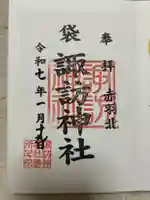 奉拝 赤羽北
袋
諏訪神社
令和七年一月十九日